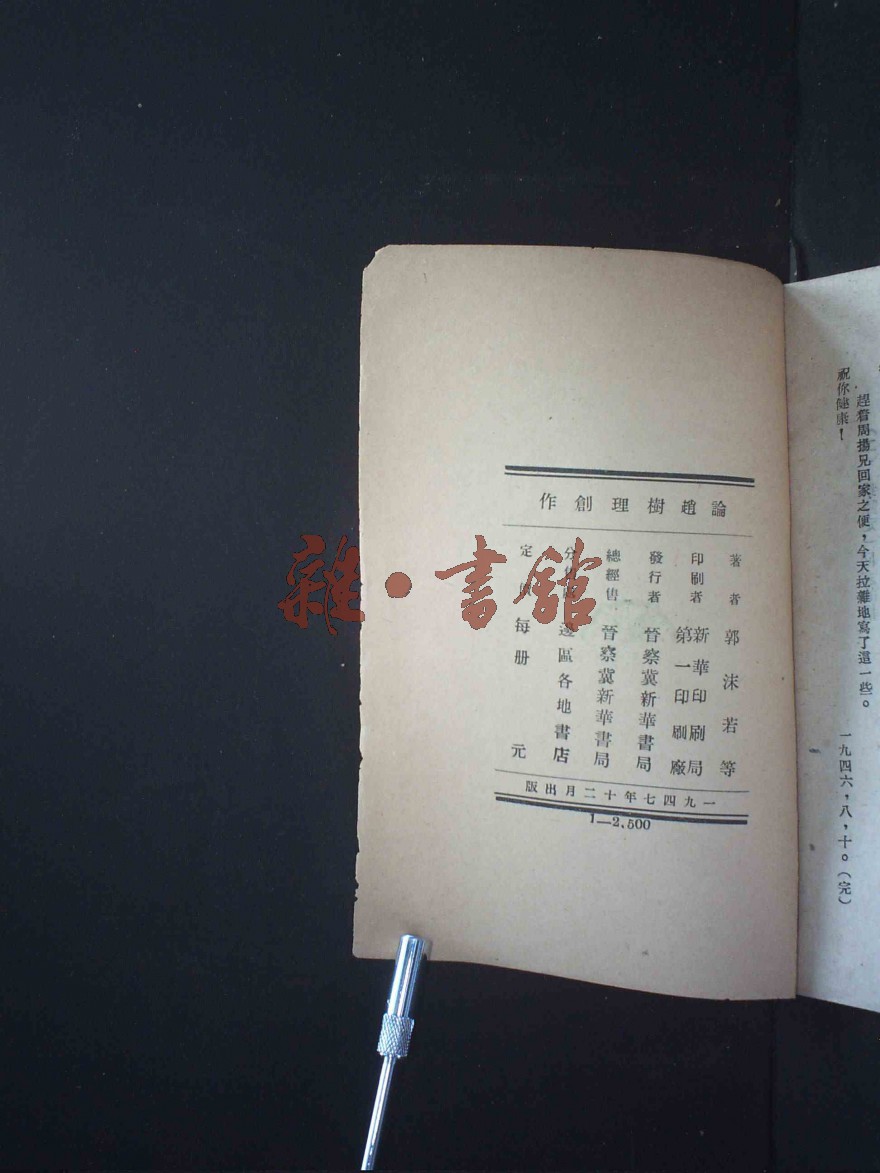 趕着周揚兄回家之便，今天拉雜地寫了這一些。
祝你健康！
一九四六，八，十。（完）
論趙樹理創作
著者 郭沫若等
印刷者 新華印刷局
第一印刷廠
發行者 晉察冀新華書局
總經售 晉察冀新華書局
分 邊區各地書店
定 每册 元
一九四七年十二月出版
1—2,500
雜·書館